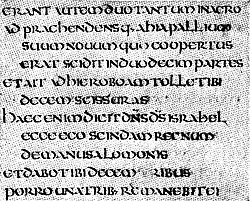 ERANT AUTEM DUO TANTUM IN AGRO
ADPRAEHENDENSQ. AHIA PALLIUM
SUUM NOUUM QUO COOPERTUS
ERAT SCIDIT IN DUODECIM PARTES
ET AIT AD HIEROBOAM TOLLE TIBI
DECEM SCISSURAS
HAEC ENIM DICIT DN̄S DS̄ ISRAHEL
ECCE EGO SCINDAM REGNUM
DE MANU SALOMONIS
ET DABO TIBI DECEM TRIBUS
PORRO UNA TRIBUS REMANEBIT EI